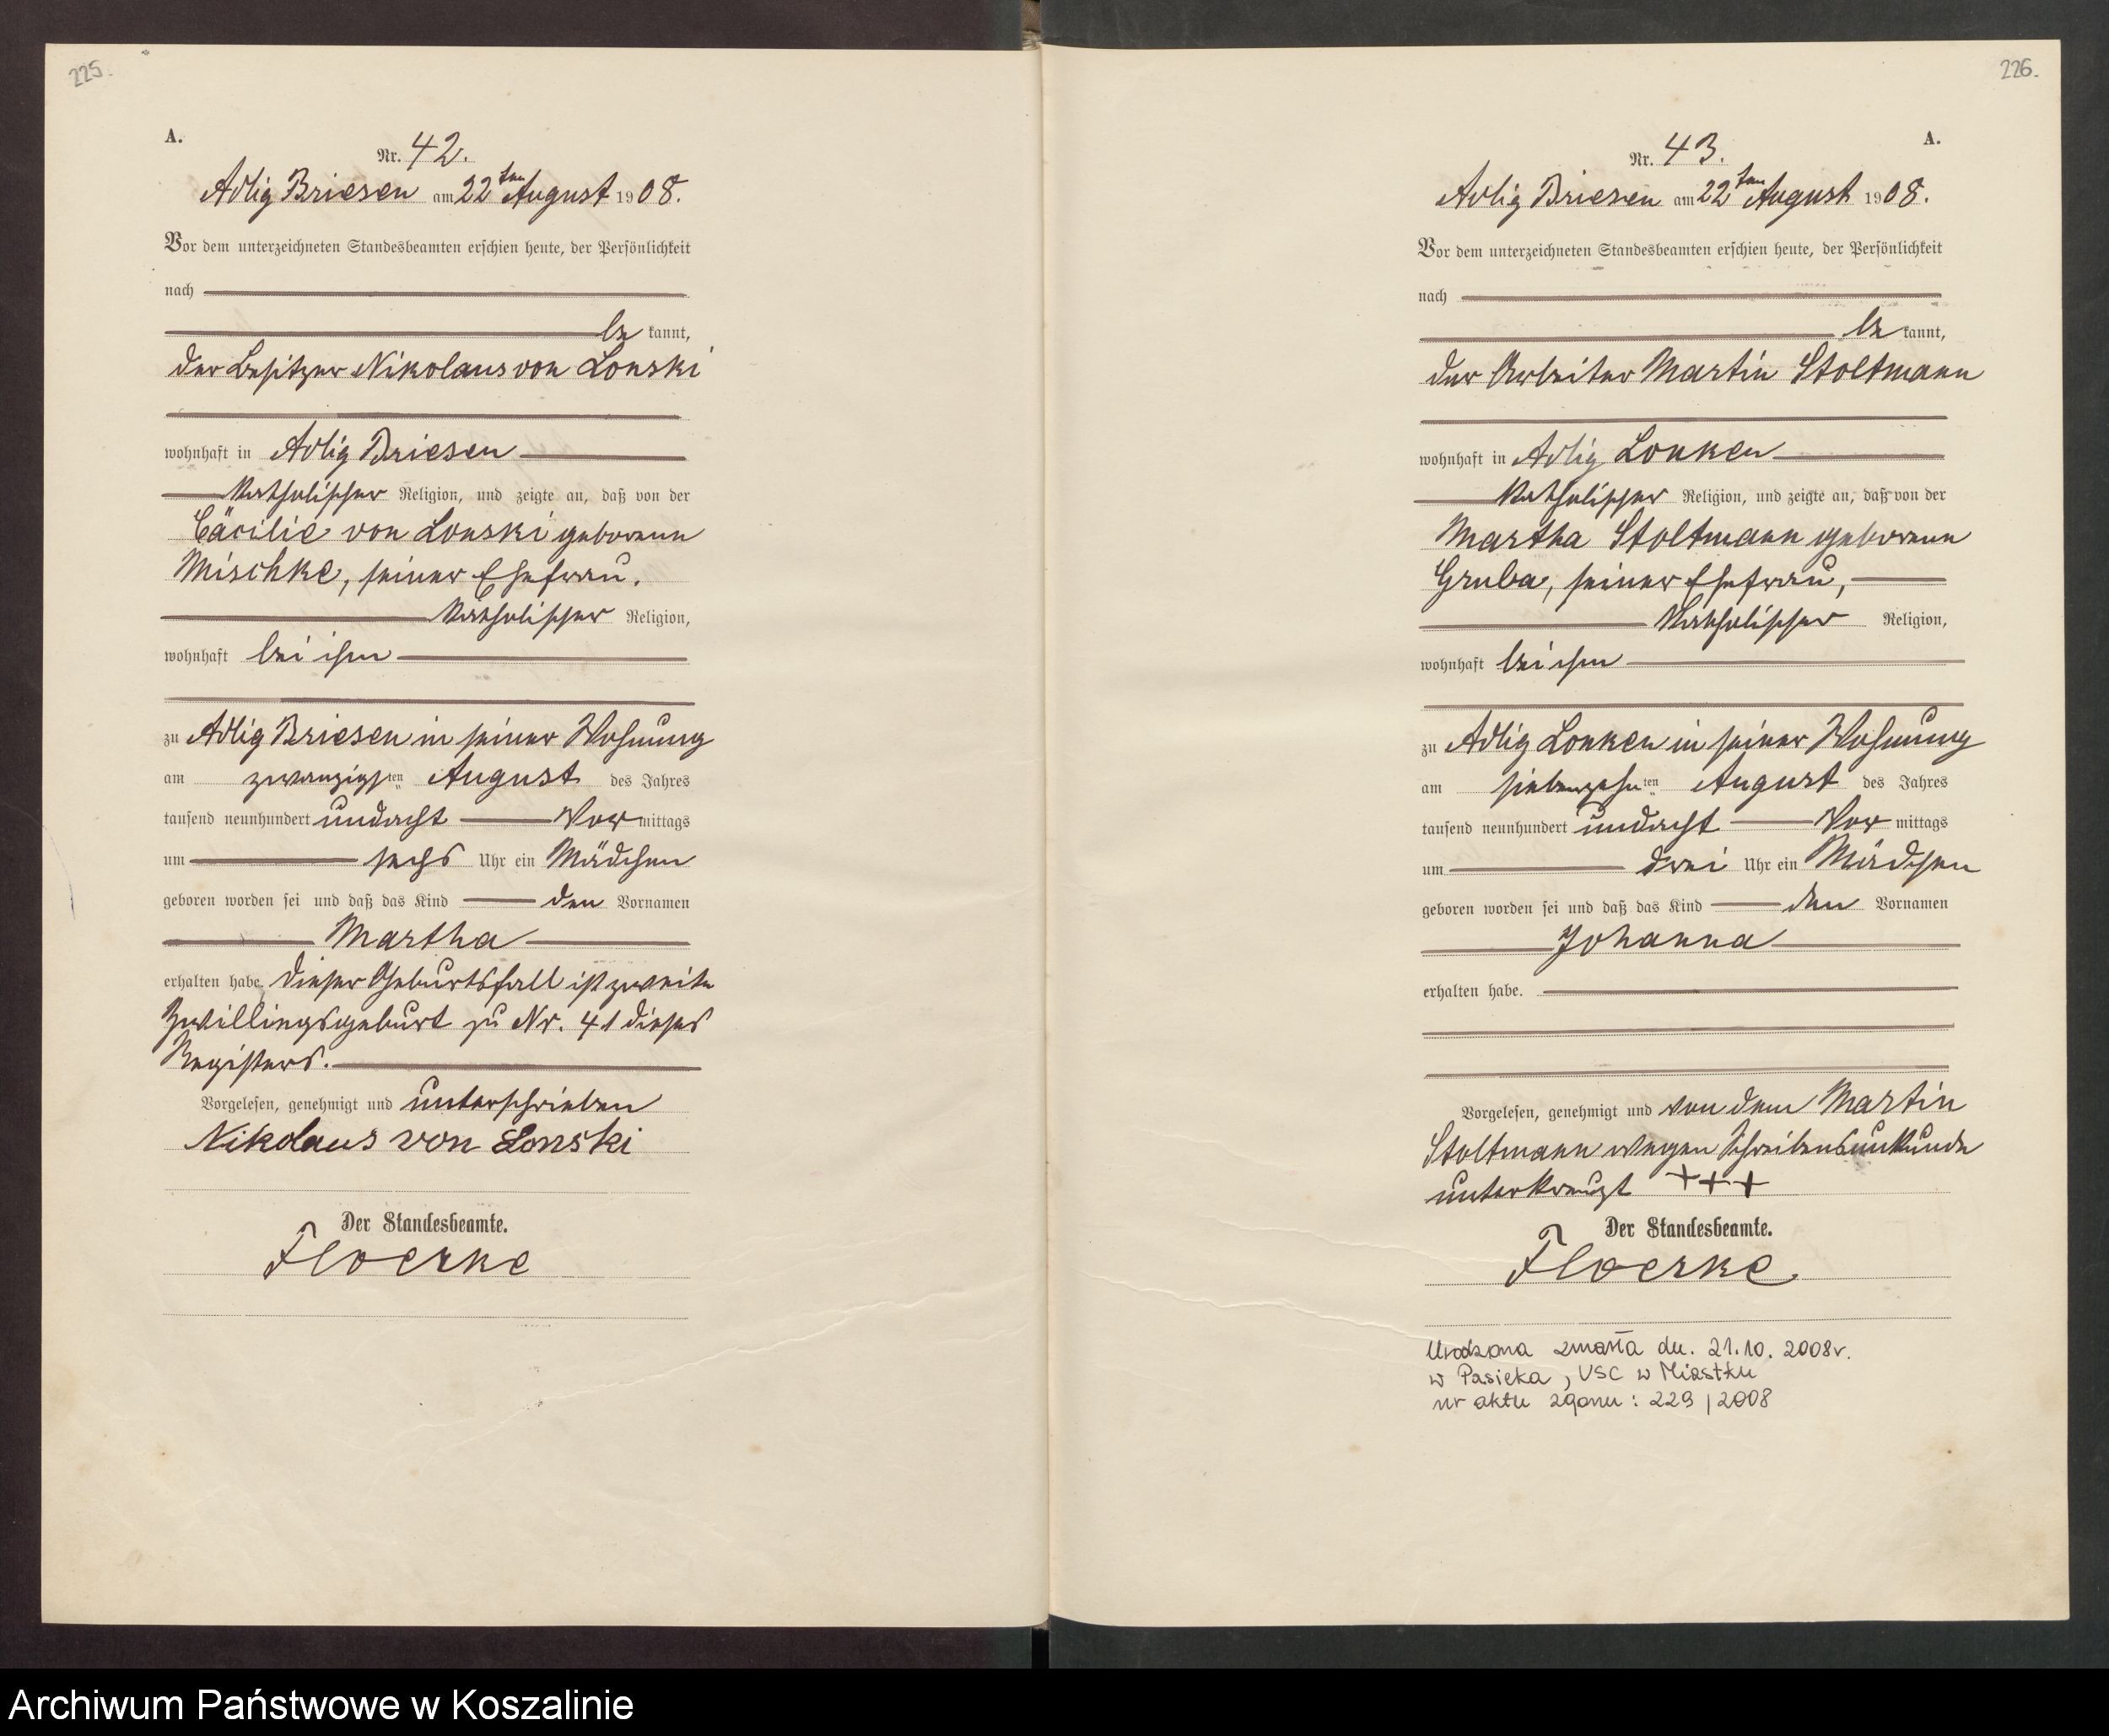 225.
A.
Nr. 42.
Adlig Briesen am 22ten August 1908.
Vor dem unterzeichneten Standesbeamten erschien heute, der Persönlichkeit
nach
be kannt,
der Besitzer Nikolaus von Lonski
wohnhaft in Adlig Briesen
katholischer Religion, und zeigte an, daß von der
Cäcilie von Lonski geborenen
Mischke, seiner Ehefrau.
katholischer Religion,
wohnhaft bei ihm
zu Adlig Briesen in seiner Wohnung
am zwanzigsten August des Jahres
tausend neunhundert undacht Vor mittags
um sechs Uhr ein Mädchen
geboren worden sei und daß das Kind den Vornamen
Martha
erhalten habe. Dieser Geburtsfall ist zweite
Zwillingsgeburt zu Nr. 41 dieses
Registers.
Vorgelesen, genehmigt und unterschrieben
Nikolaus von Lonski
Der Standesbeamte.
Floerke
226.
A.
Nr. 43.
Adlig Briesen am 22ten August 1908.
Vor dem unterzeichneten Standesbeamten erschien heute, der Persönlichkeit
nach
be kannt,
der Arbeiter Martin Stoltmann
wohnhaft in Adlig Lonken
katholischer Religion, und zeigte an, daß von der
Martha Stoltmann geborenen
Gruba, seiner Ehefrau,
katholischer Religion,
wohnhaft bei ihm
zu Adlig Lonken in seiner Wohnung
am siebenzehnten August des Jahres
tausend neunhundert undacht Vor mittags
um drei Uhr ein Mädchen
geboren worden sei und daß das Kind den Vornamen
Johanna
erhalten habe.
Vorgelesen, genehmigt und von dem Martin
Stoltmann wegen Schreibensunkunde
unterkreuzt +++
Der Standesbeamte.
Floerke
Urodzona zmarła dn. 21.10.2008r.
w Pasieka, USC w Miastku
nr aktu zgonu: 229/2008
Archiwum Państwowe w Koszalinie